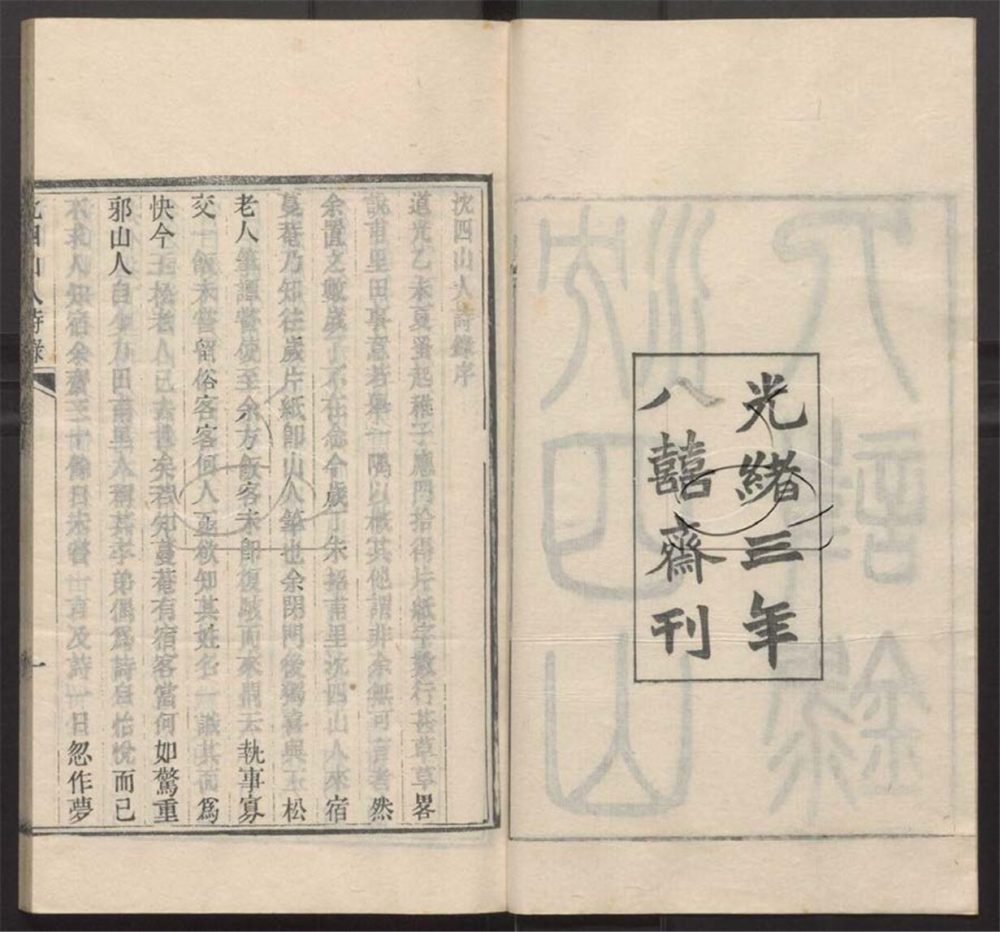 光緒三年
八囍齋刊
沈四山人詩錄序
道光乙未夏蚤起稚子應門拾得片紙字數行甚草草畧
說甫里田事意若舉一隅以概其他謂非余無可言者然
余置之數歲了不在念今歲丁未招甫里沈四山人來宿
蔓菴乃知往歲片紙卽山人筆也余閉門後獨喜與玉松
老人筆譚嘗使至余方飯客未卽復敲而來謂云執事寡
交一飯未嘗留俗客客何人亟欲知其姓名一識其面爲
快今玉松老人已去世矣若知蔓菴有宿客當何如驚重
邪山人自少力田甫里人稱其孝弟偶爲詩自怡悅而已
不求人知宿余齋三十餘日未嘗一言及詩一日忽作夢
沈四山人詩錄
一